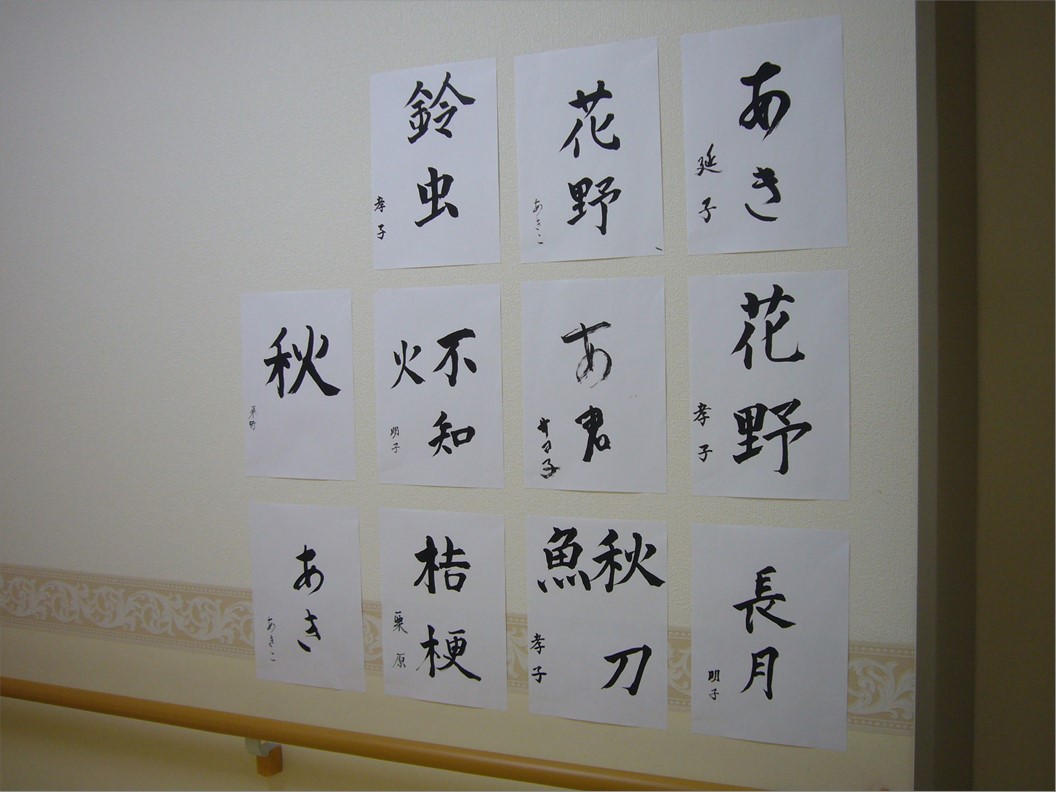 あき
延子
花野
あきこ
鈴虫
孝子
花野
孝子
あ君
不知
火
明子
秋
長月
明子
秋刀
魚
孝子
桔梗
栗原
あき
あきこ